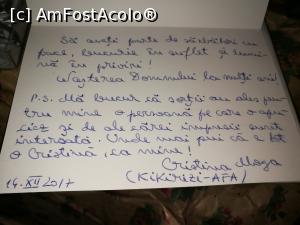 [c] AmFostAcolo®
Să aveți parte de sărbători cu
pace, bucurie în suflet și lumi-
nă în priviri!
Nașterea Domnului la mulți ani!
P.S. Mă bucur că sorții au ales pen-
tru mine o persoană pe care o apre-
ciez și de ale cărei impresii sunt
interesată. Unde mai pui că e tot
o Cristina, ca mine!
Cristina Moga
14.XII.2017 (KiKiRiZi-AFA)